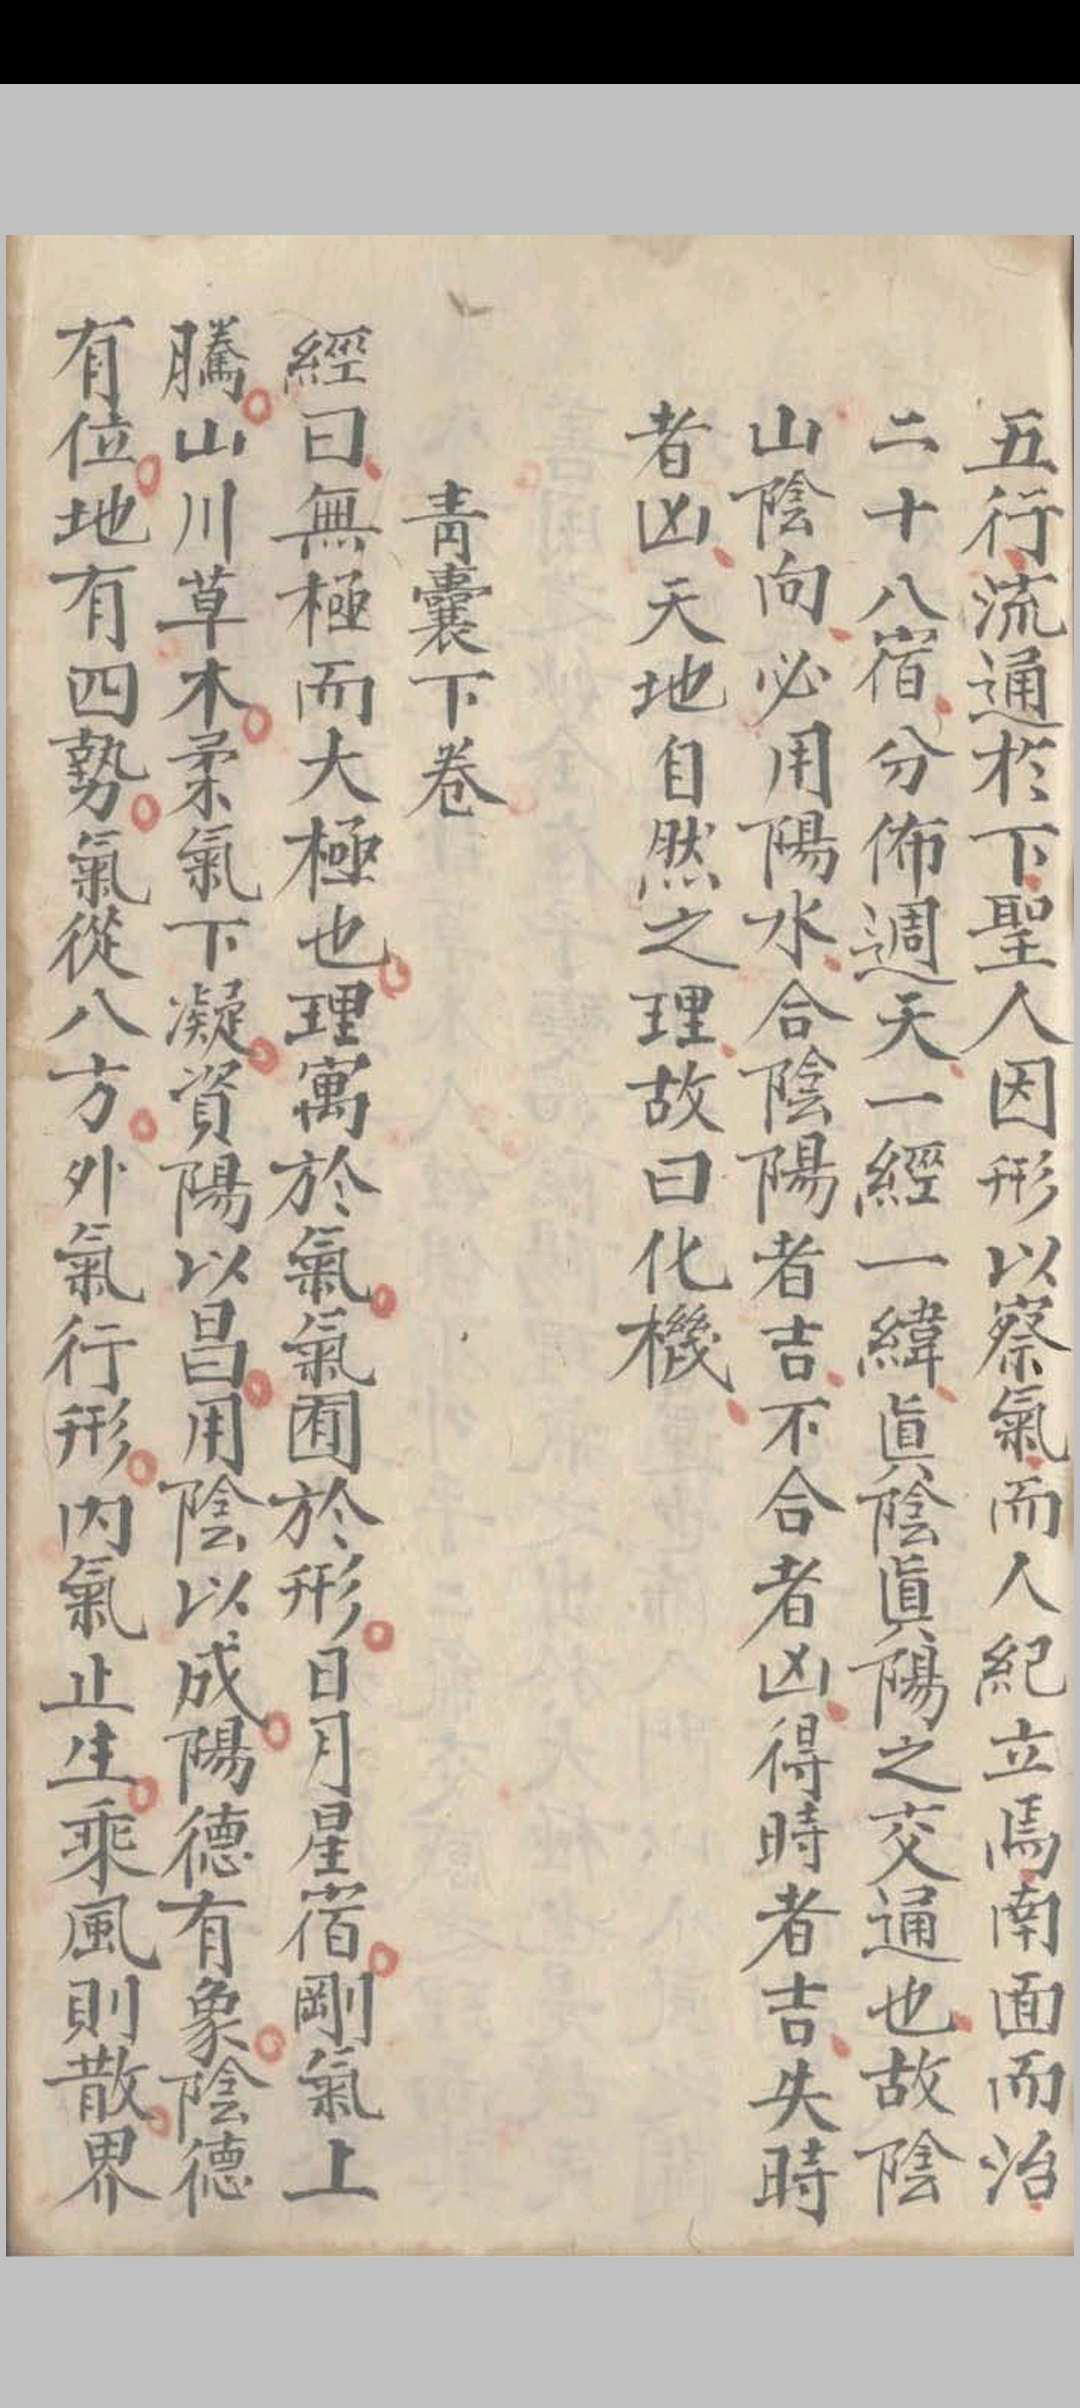 五行流通於下聖人因形以察氣而人紀立焉南面而治
二十八宿分佈週天一經一緯眞陰眞陽之交通也故陰
山陰向必用陽水合陰陽者吉不合者凶得時者吉失時
者凶天地自然之理故曰化機
青囊下卷
經曰無極而大極也理寓於氣氣囿於形日月星宿剛氣上
騰山川草木柔氣下凝資陽以昌用陰以成陽德有象陰德
有位地有四勢氣從八方外氣行形內氣止生乘風則散界